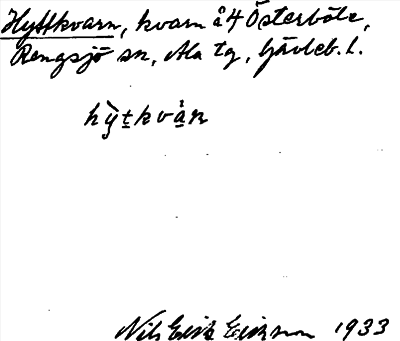 Hyttkvarn, kvarn å 4 Österböle,
Rengsjö sn, Ala tg, Gävleb. l.
hỳ̠t̠kvå̠n
Nils Erik Erikson 1933